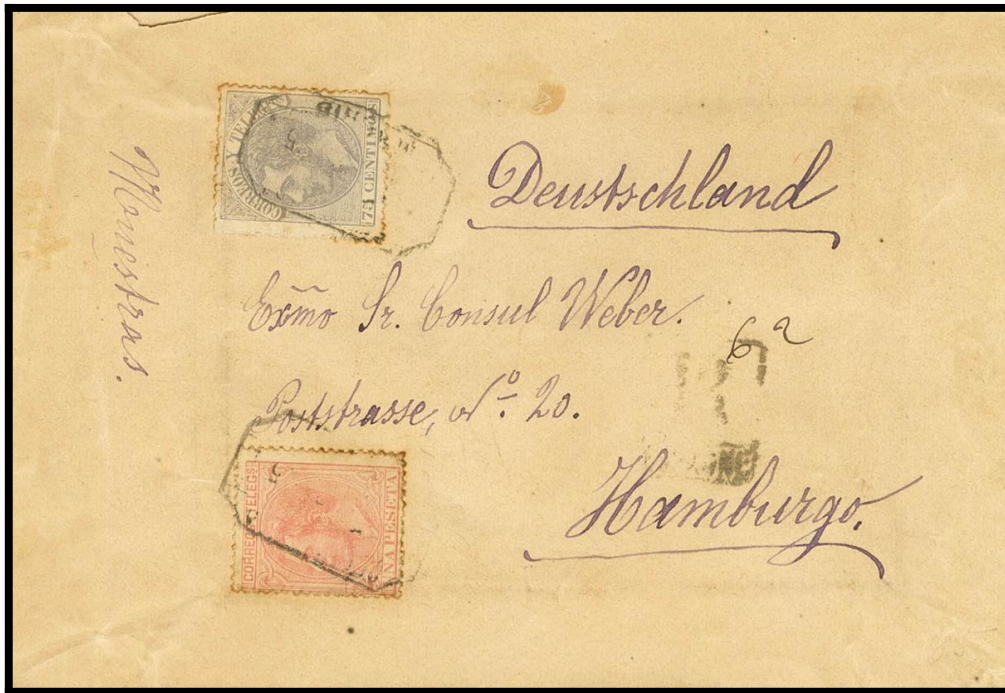 Muestras.
CORREOS Y TELEGS
75 CENTIMOS
Deustschland
Exmo Sr. Consul Weber.
6 2
Poststrasse, Nº 20.
CORREOS TELEGS
UNA PESETA
Hamburgo.